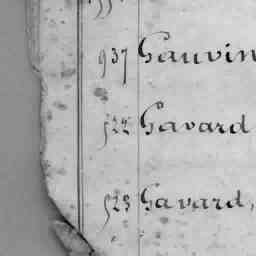 937 Gauvin
522 Gavard
523 Gavard,